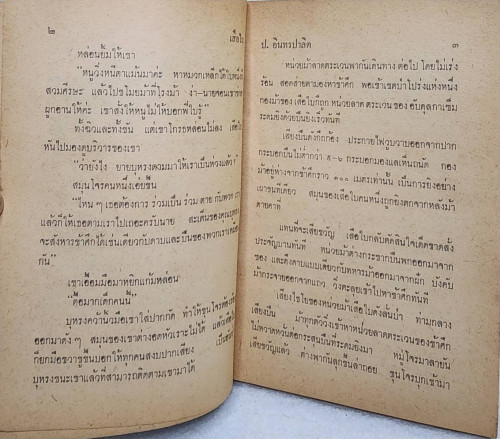 ๒
เสือใบ
หล่อนยิ้มให้เขา
"หนูวิ่งหนีตาแม้นมาค่ะ หาหมวกเหล็กได้ใบหนึ่ง
สวมศีรษะ แล้วไปขโมยม้าที่โรงม้า
ผูกอานให้ค่ะ เขาสั่งให้หนูไม่ให้บอกพี่ใบรู้"
ทั้งฉิวและทั้งขัน แต่เขาโกรธหล่อนไม่ลง
หันไปมองดูบริวารของเขา
"ว่ายังไง ยายบุหรงตามมาให้เราเป็นห่วงแล้ว
สมุนโจรคนหนึ่งเอ่ยขึ้น
"ไหน ๆ เธอต้องการ ร่วมเป็น ร่วม ตาย กับพวก
แล้วก็ให้เธอตามเราไปเถอะครับนาย
จะสังหารข้าศึกได้เช่นเดียวกับดาบและปืนของพวกเรา
กัน"
เขาเอื้อมมือมาหยิกแก้มหล่อน
"ดื้อมากเด็กคนนี้"
บุหรงคว้านิ้วมือเขาใส่ปากกัด ทำให้ขุนโจรต้อง
ออกมาดัง ๆ สมุนของเขาต่างอดหัวเราะไม่ได้
ก็ยกมือขวาชูขึ้นบอกให้ทุกคนสงบปากเสียง
บุหรงชนะเขาแล้วที่สามารถติดตามเขามาได้
ป. อินทรปาลิต
๓
หน่วยม้าลาดตระเวนพากันเดินทางต่อไป โดยไม่เร่ง
ร้อน สอดส่ายตามองหาข้าศึก พอเข้าเขตป่าโปร่งแห่งหนึ่ง
กองม้าของ เสือใบก็ถูก หน่วยลาด ตระเวน ของ อับดุลกาเซ็ม
ระดมยิงด้วยปืนยิงเร็วทันที
เสียงปืนดังกึกก้อง ประกายไฟวูบวาบออกจากปาก
กระบอกปืนไม่ต่ำกว่า ๕-๖ กระบอกมองแลเห็นถนัด กอง
ม้าอยู่ห่างจากข้าศึกราว ๑๐๐ เมตรเท่านั้น เป็นการยิงอย่าง
เผาขนทีเดียว สมุนของเสือใบคนหนึ่งถูกยิงตกจากหลังม้า
ตายคาที่
แทนที่จะเสียขวัญ เสือใบกลับตัดสินใจเด็ดขาดสั่ง
ประจัญบานทันที หน่วยม้าต่างกระชากปืนพกออกมาจาก
ซอง และดึงดาบแบบเดียวกับทหารม้าออกมาจากฝัก บังคับ
ม้ากระจายออกจากแถว วิ่งตะลุยเข้าไปหาข้าศึกทันที
เสียงไชโยของหน่วยม้าเสือใบดังลั่นป่า ท่ามกลาง
เสียงปืน ม้าทุกตัววิ่งเข้าหาหน่วยลาดตระเวนของข้าศึก
ไม่หวาดหวั่นต่อกระสุนปืนที่ระดมยิงมา หมู่โจรมาลายัน
เสียขวัญแล้ว ต่างพากันลุกขึ้นล่าถอย ขุนโจรบุกเข้ามา